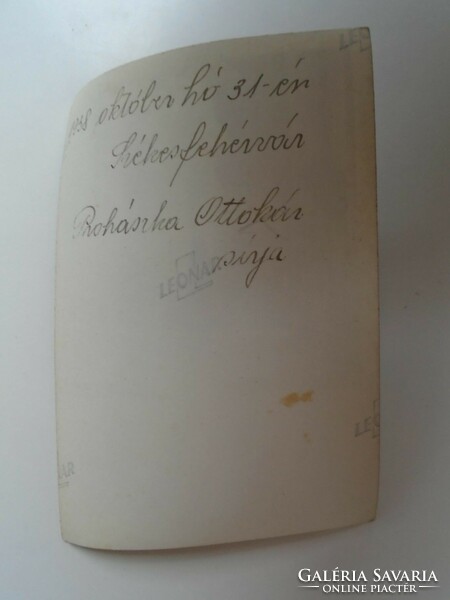 1938 október hó 31-én
Székesfehérvár
Prohászka Ottokár
sírja
LEONAR
LE
LEO
NAR
GALÉRIA SAVARIA
ONLINE PIACTÉR